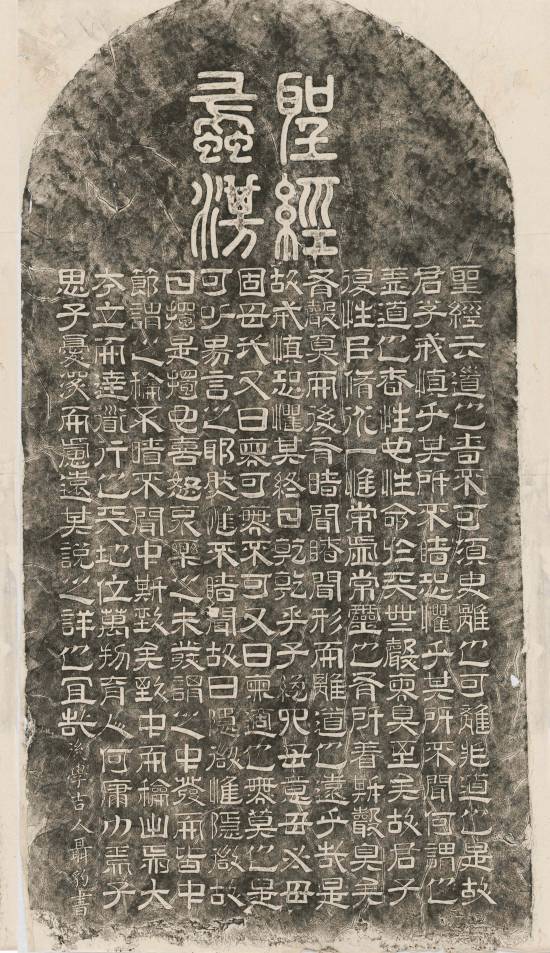 聖經
蠡測
聖經云道也者不可須臾離也可離非道也是故
君子戒慎乎其所不睹恐懼乎其所不聞何謂也
蓋道也者性也性命於天無聲無臭至矣故君子
復性脩一惟常虛常靈也有所着斯聲臭矣
有聲臭而後有睹聞睹聞形而離道也遠乎哉是
故戒慎恐懼其終日乾乾乎子絕四毋意毋必毋
固毋我又曰無可無不可又曰無適也無莫也是
可少易言之耶然惟不睹聞故曰隱微惟隱微故
曰獨是獨也喜怒哀樂之未發謂之中發而皆中
節謂之和不睹不聞中斯致矣致中而和出焉大
本立而達道行也天地位萬物育也何庸心焉子
思子憂深而慮遠其說之詳也宜哉
後學古人聶豹書